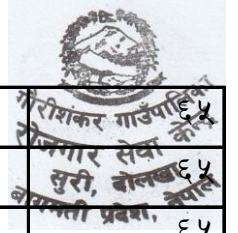 गौरीशंकर गाउँपालिका
रोजगार सेवा केन्द्र
सुरी, दोलखा
बागमती प्रदेश, नेपाल
६५
६५
६५